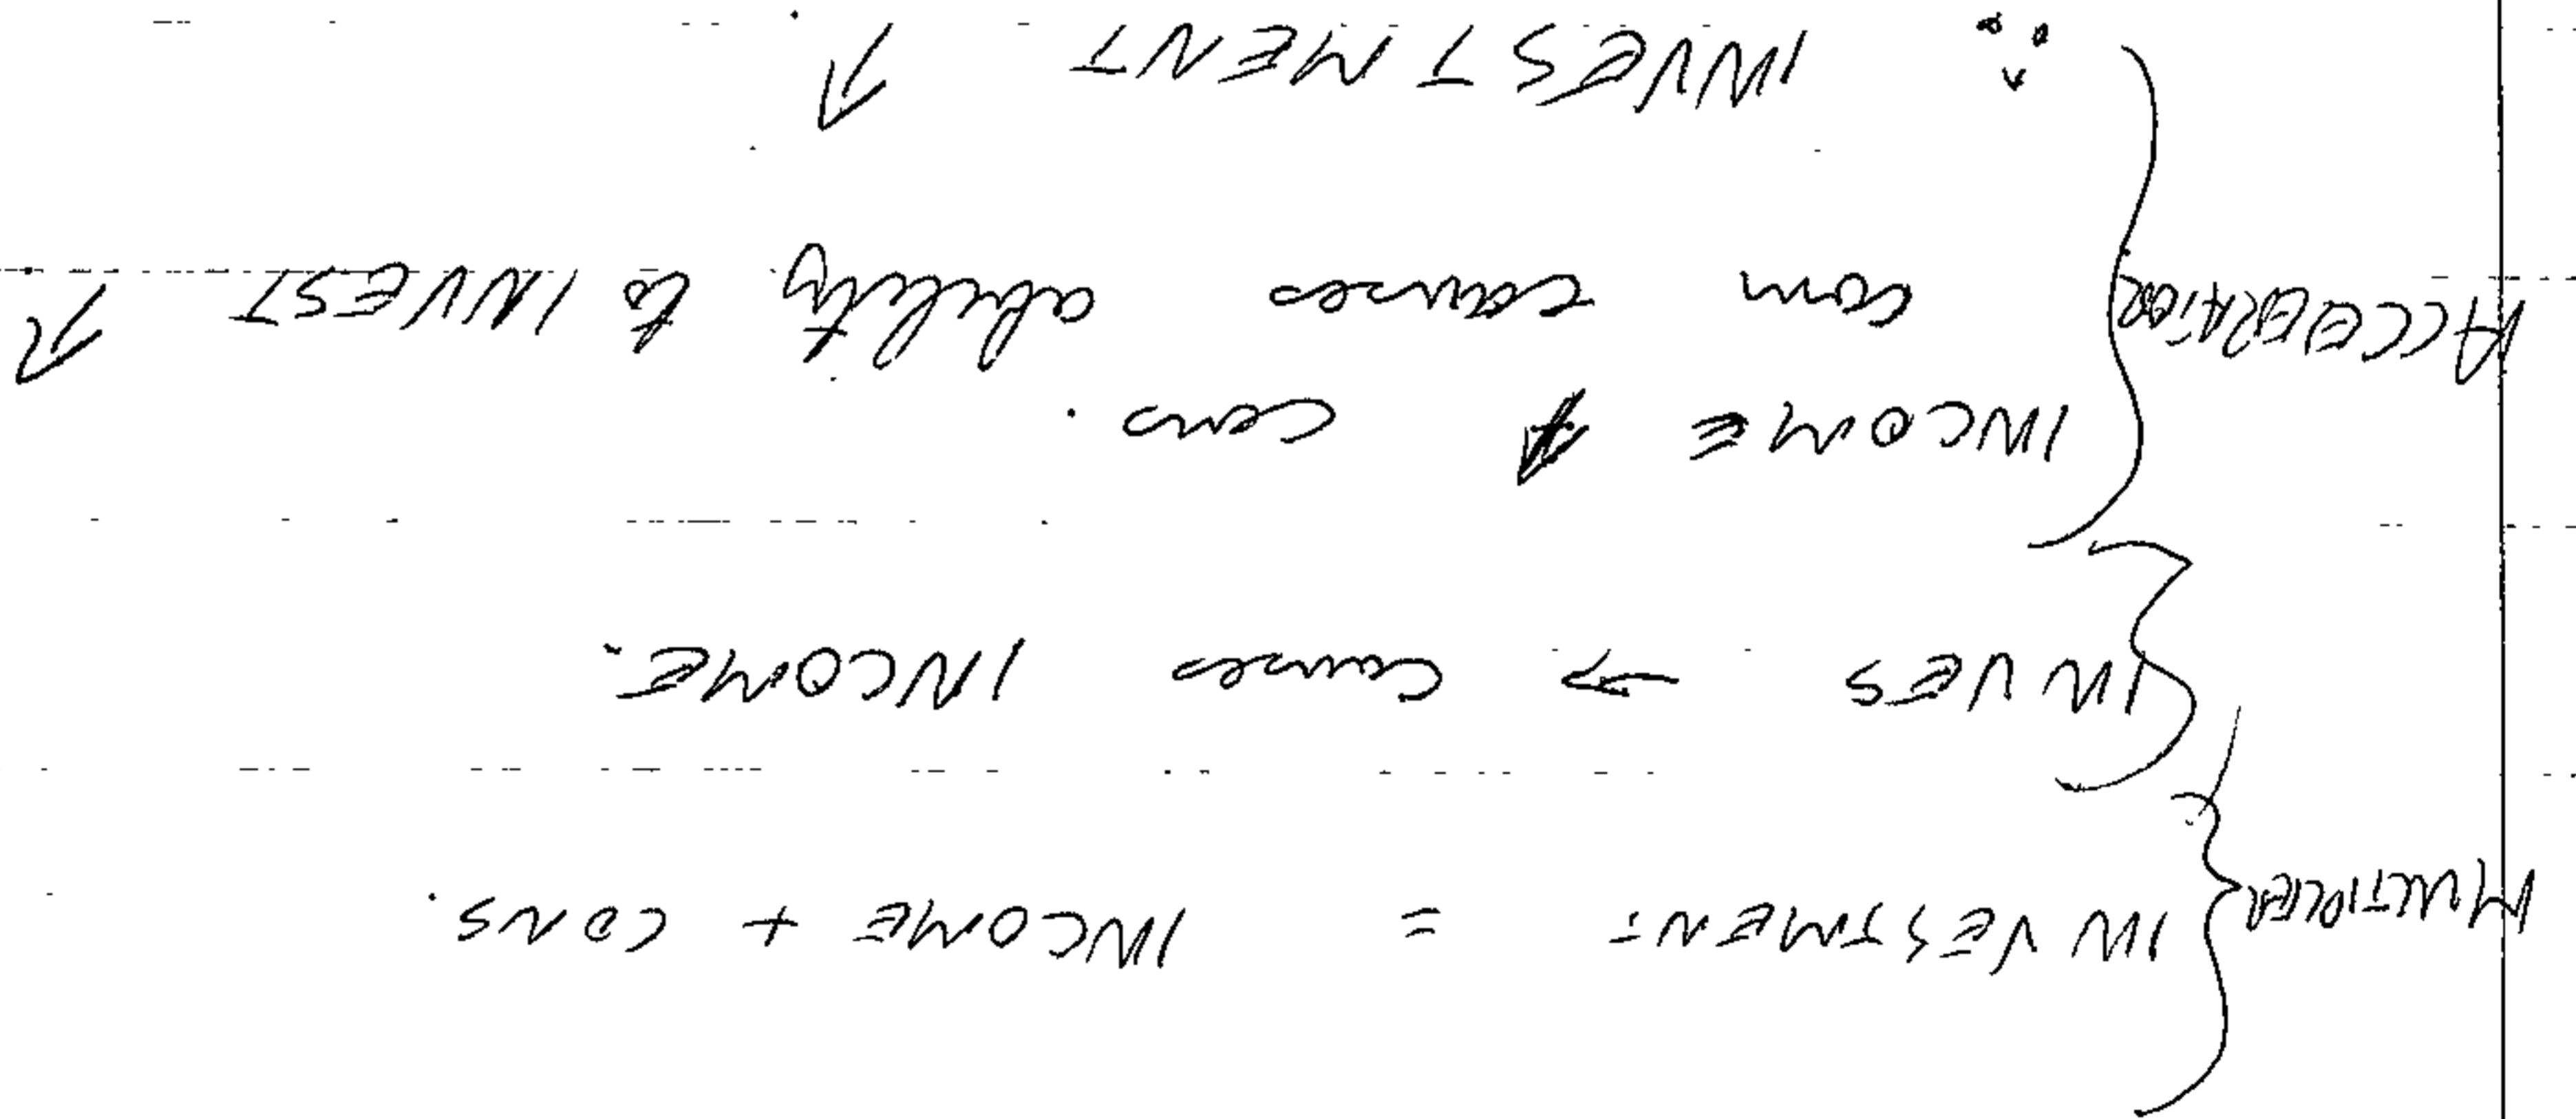 MULTIPLIER { INVESTMENT = INCOME + CONS.
INVES → causes INCOME.
INCOME ↑ cons.
ACCELERATOR { causes ability to INVEST ↑
∴ INVESTMENT ↑